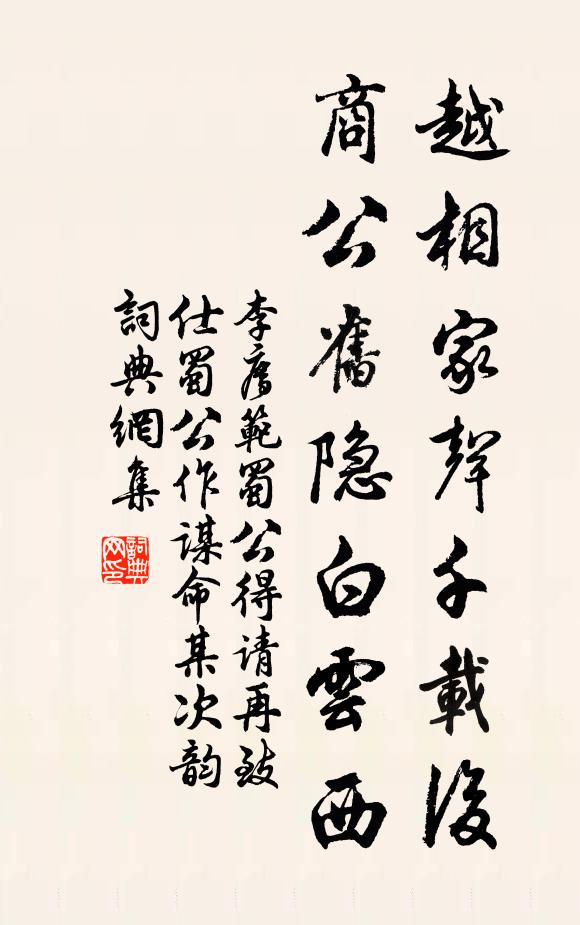 越相家聲千載後
商公舊隐白雲西
李廌範蜀公得请再致
仕蜀公作謀命某次韵
詞典網集
詞典
网印